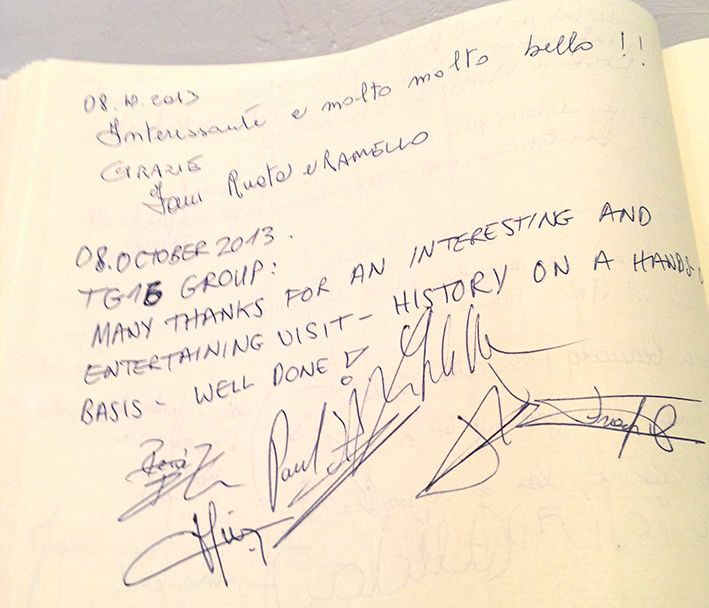 08.10.2013
Interessante e molto molto bello !!
GRAZIE
Fam Ruata e RAMELLO
08.OCTOBER 2013.
TG16 GROUP:
MANY THANKS FOR AN INTERESTING AND
ENTERTAINING VISIT - HISTORY ON A HANDS-
BASIS - WELL DONE !
Paul